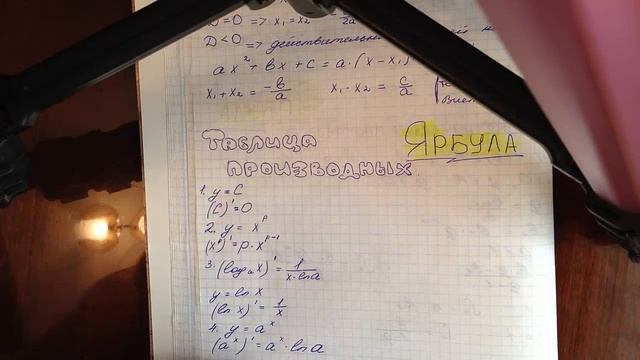 D=0 => x₁=x₂ 2a
D<0 => действительн
ax²+bx+c=a·(x-x₁)
x₁+x₂=-b/a x₁·x₂=c/a
Таблица ЯРБУЛА
ПРОИЗВОДНЫХ
1. y=C
(C)'=0
2. y=xᵖ
(xᵖ)'=p·xᵖ⁻¹
3. (logₐx)'=1/(x·lna)
y=lnx
(lnx)'=1/x
4. y=aˣ
(aˣ)'=aˣ·lna